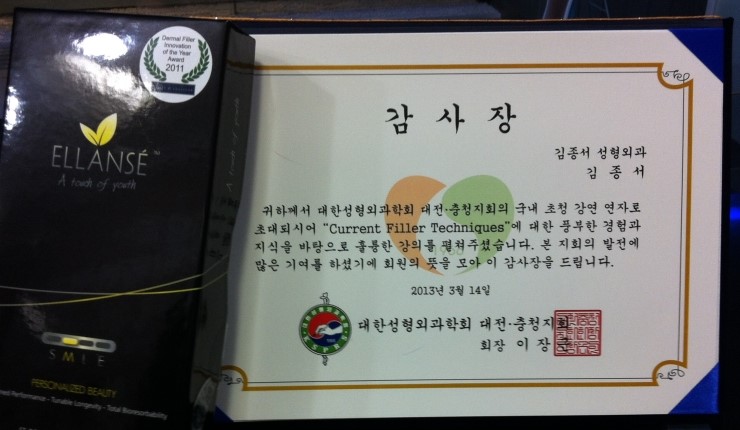 Dermal Filler
Innovation
of the Year
Award
2011
ELLANSÉ™
A touch of youth
A touch of youth
S M I E
PERSONALIZED BEAUTY
Performance - Tunable Longevity - Total Bioresorbability
감사장
김종서 성형외과
김 종 서
귀하께서 대한성형외과학회 대전·충청지회의 국내 초청 강연 연자로
초대되시어 "Current Filler Techniques"에 대한 풍부한 경험과
지식을 바탕으로 훌륭한 강의를 펼쳐주셨습니다. 본 지회의 발전에
많은 기여를 하셨기에 회원의 뜻을 모아 이 감사장을 드립니다.
2013년 3월 14일
대한성형외과학회 대전·충청지회
회장 이 장